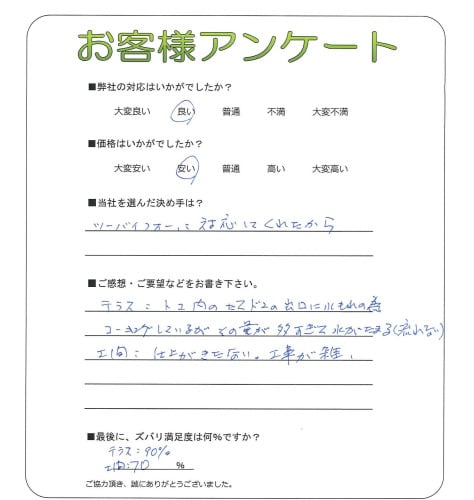 お客様アンケート
■弊社の対応はいかがでしたか？
大変良い 良い 普通 不満 大変不満
■価格はいかがでしたか？
大変安い 安い 普通 高い 大変高い
■当社を選んだ決め手は？
ツーバイフォーに対応してくれたから
■ご感想・ご要望などをお書き下さい。
テラス：内の出口に水もれの為
コーキングしているがその量が多すぎて水がたまる(流れない)
土間：仕上がきたない。工事が雑、
■最後に、ズバリ満足度は何％ですか？
テラス：90%
土間：70 ％
ご協力頂き、誠にありがとうございました。